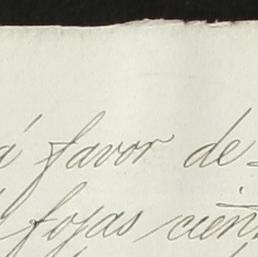 á favor de
fojas cient